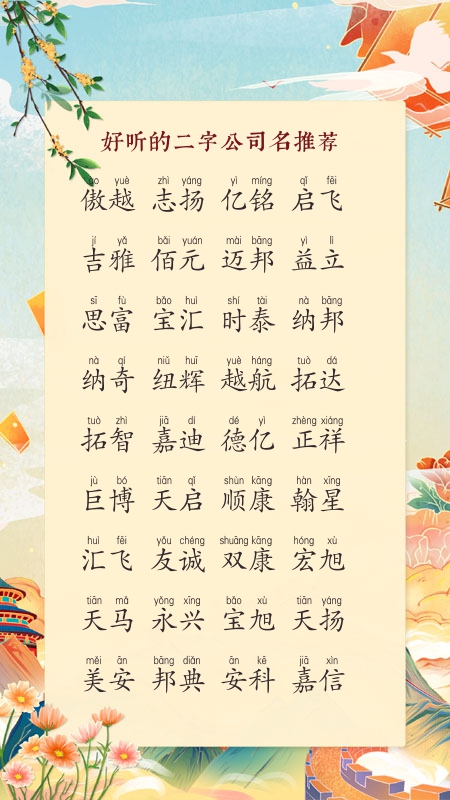 好听的二字公司名推荐
ào yuè zhì yáng yì míng qǐ fēi
傲越 志扬 亿铭 启飞
jí yǎ bǎi yuán mài bāng yì lì
吉雅 佰元 迈邦 益立
sī fù bǎo huì shí tài nà bāng
思富 宝汇 时泰 纳邦
nà qí niǔ huī yuè háng tuò dá
纳奇 纽辉 越航 拓达
tuò zhì jiā dí dé yì zhèng xiáng
拓智 嘉迪 德亿 正祥
jù bó tiān qǐ shùn kāng hàn xīng
巨博 天启 顺康 翰星
huì fēi yǒu chéng shuāng kāng hóng xù
汇飞 友诚 双康 宏旭
tiān mǎ yǒng xīng bǎo xù tiān yáng
天马 永兴 宝旭 天扬
měi ān bāng diǎn ān kē jiā xìn
美安 邦典 安科 嘉信